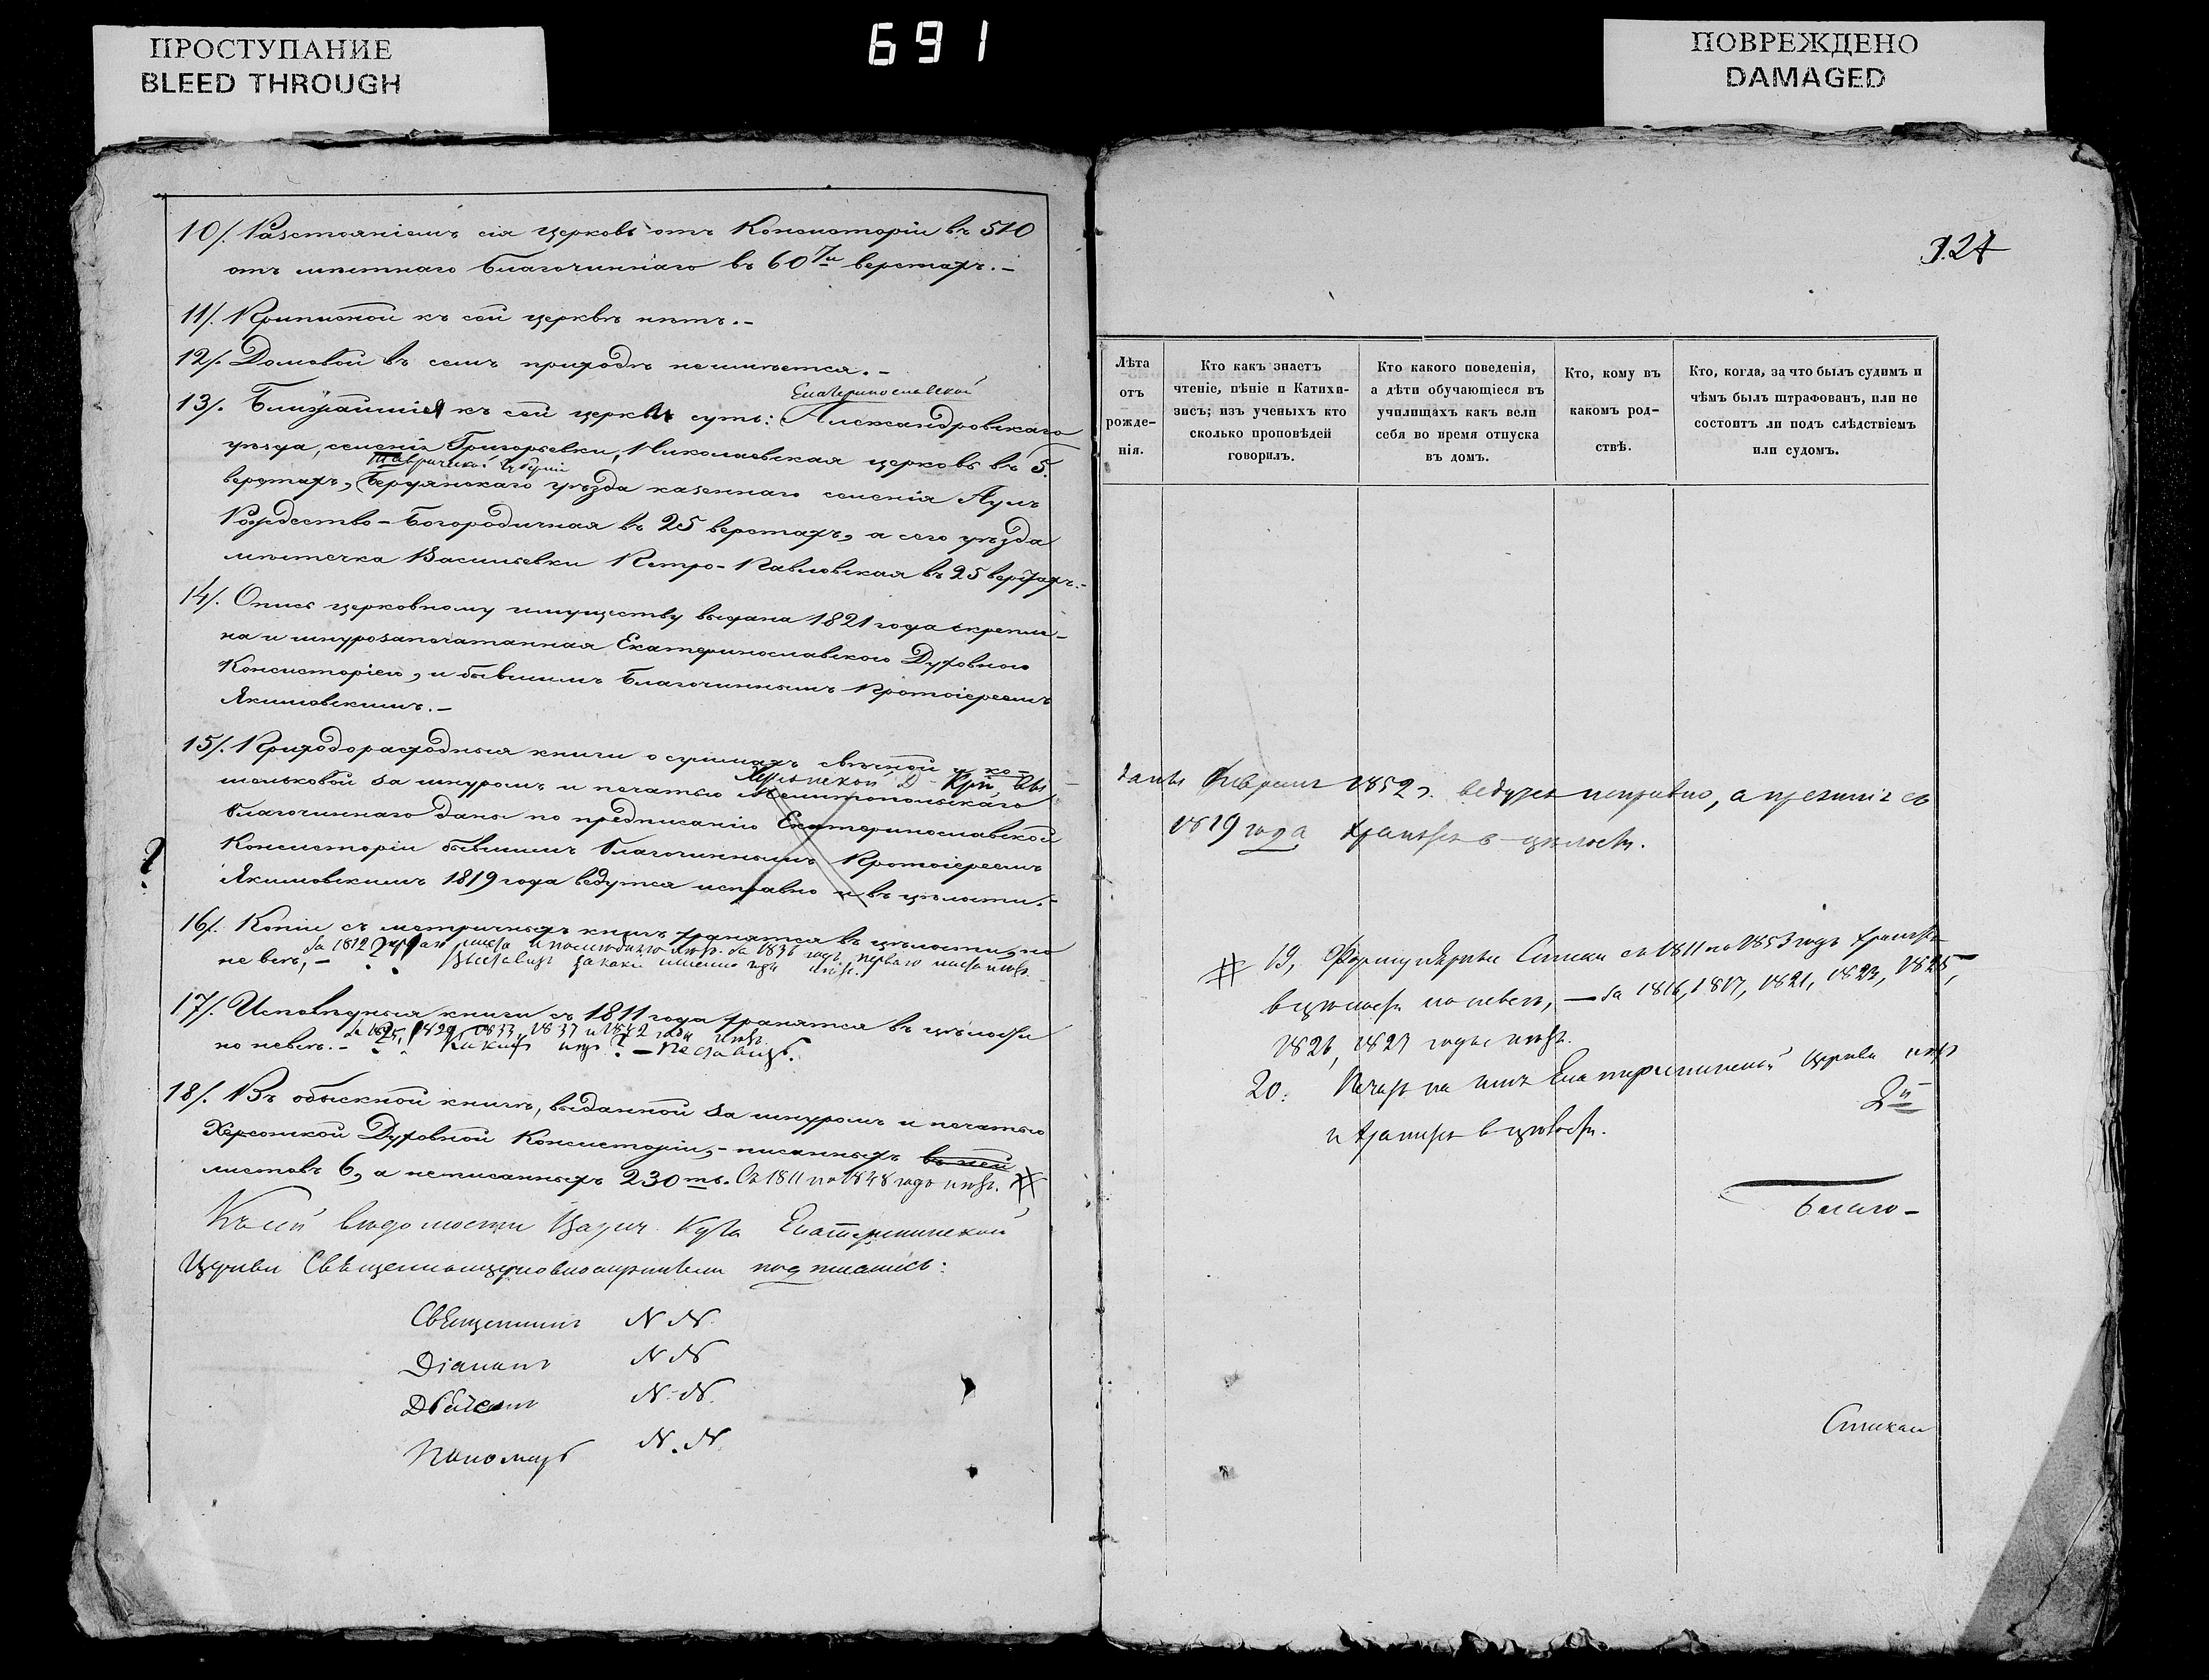 ПРОСТУПАНИЕ
BLEED THROUGH
691
ПОВРЕЖДЕНО
DAMAGED
10/. Разстояніемъ сія церковь отъ Консисторіи въ 510
отъ мѣстнаго Благочиннаго въ 60 ти верстахъ.-
11/. Приписной къ сей церквѣ нѣтъ.-
12/. Домовой въ семъ приходѣ неимѣется.-
Екатеринославской
13/. Ближайшія къ сей церкви суть: Александровскаго
уѣзда, селенія Григорьевки, Николаевская церковь въ 5
Таврической Губерніи
верстахъ, Бердянскаго уѣзда казеннаго селенія Аулъ
Рождество-Богородичная въ 25 верстахъ, а сего уѣзда
мѣстечка Васильевки Петро-Павловская въ 25 верстахъ.-
14/. Опись церковному имуществу выдана 1821 года скрепле-
на и шнурозапечатанная Екатеринославскою Духовною
Консисторіею, и бывшимъ Благочиннымъ Протоіереемъ
Якимовскимъ.-
15/. Приходорасходныя книги о суммахъ свѣчной и ко-
Херсонской Д
шельковой за шнуромъ и печатью Мелитопольскаго
благочиннаго даны по предписанію Екатеринославской
Консисторіи бывшимъ благочиннымъ Протоіереемъ
Якимовскимъ 1819 года ведутся исправно и въ цѣлости.-
16/. Копіи съ метричныхъ книгъ хранятся въ цѣлости, но
за 1812 листа и последняго за 1836 годъ перваго листа нѣтъ.
не всѣ,-
17/. Исповѣдныя книги съ 1811 года хранятся въ цѣлости
1829, 1833, 1837 и 1842 годы нѣтъ.
но невсѣ.-
18/. Въ обыскной книгѣ, выданной за шнуромъ и печатью
Херсонской Духовной Консисторіи,- писанныхъ въ ней
листовъ 6, а неписанныхъ 230 ть. Съ 1811 по 1848 годъ нѣтъ. #
Къ сей вѣдомости Екатерининской
Церкви Священноцерковнослужители подписались:
Священникъ N N.
Діаконъ N N
Дьячекъ N. N.
Пономарь N. N.
?
327
Лѣта
отъ
рожде-
нія.
Кто какъ знаетъ
чтеніе, пѣніе и Катихи-
зисъ; изъ ученыхъ кто
сколько проповѣдей
говорилъ.
Кто какого поведенія,
а дѣти обучающіеся въ
училищахъ какъ вели
себя во время отпуска
въ домъ.
Кто, кому въ
какомъ род-
ствѣ.
Кто, когда, за что былъ судимъ и
чѣмъ былъ штрафованъ, или не
состоитъ ли подъ слѣдствіемъ
или судомъ.
даны 1852 г. ведутся исправно, а прежнія съ
1819 года хранятся в цѣлости.
# 19, Формулярные Списки съ 1811 по 1853 годъ хранятся
в цѣлости но невсѣ, — За 1816, 1817, 1821, 1823, 1825,
1826, 1827 годы нѣтъ.
20. Екатерининской Церкви
и хранится в цѣлости.
Благо-
Списки